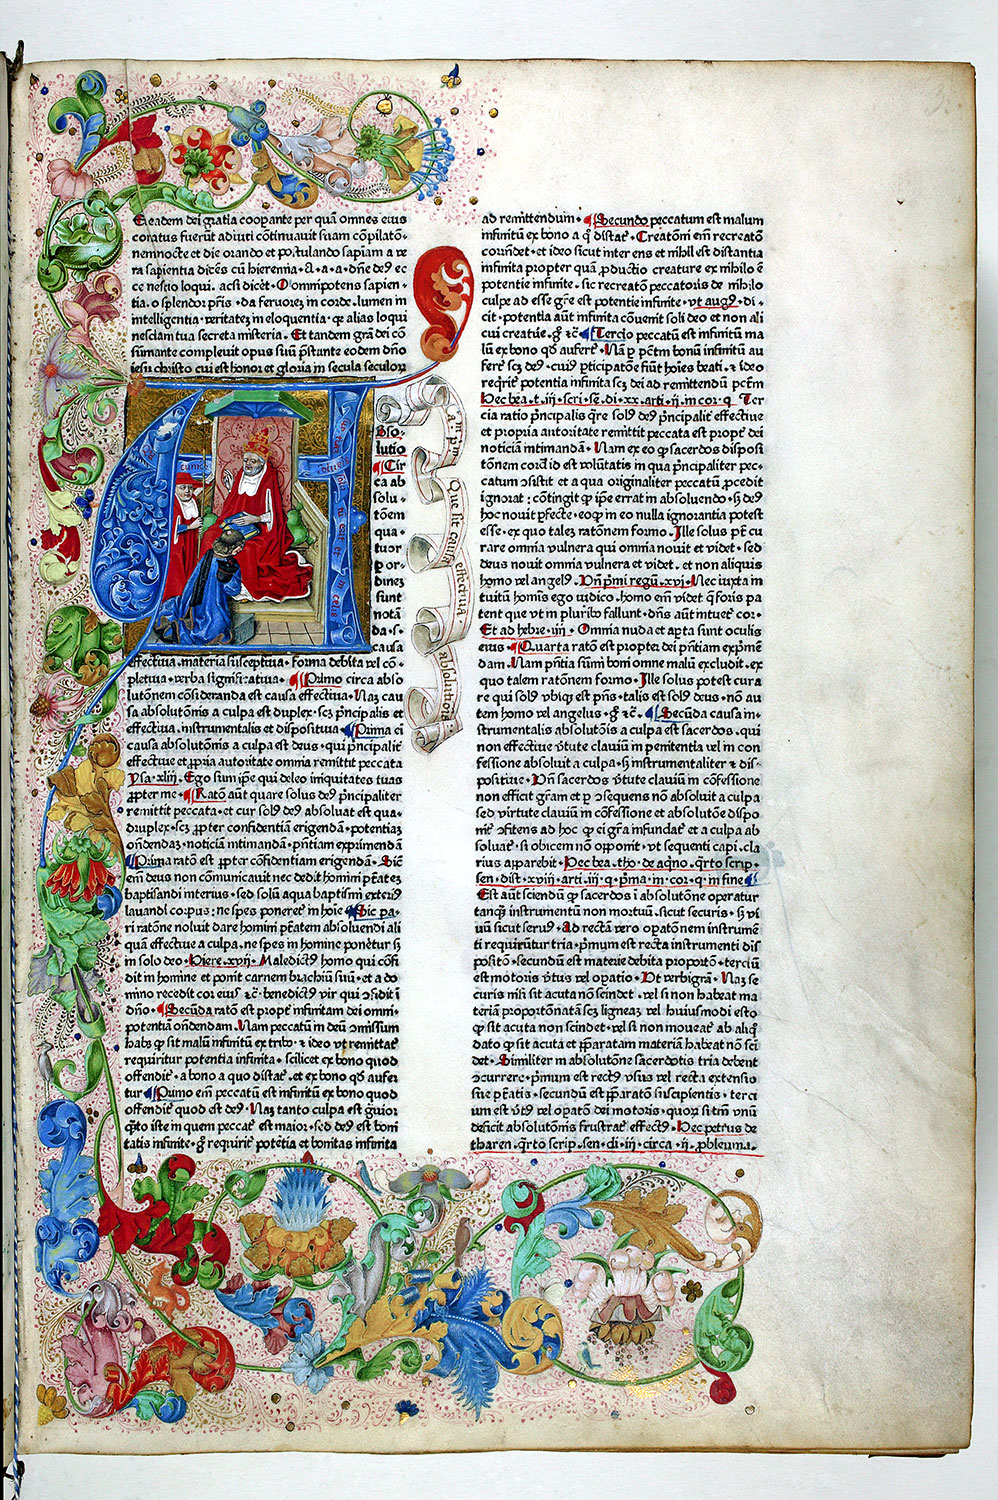 E eadem dei gratia coopante per quā omnes eius
coratus fuerūt adiuti cōtinuauit suam cōpilatō-
nem nocte et die orando et postulando sapiam a ve
ra sapientia dicēs cū hieremia · a · a · a · dn̄e deꝰ ec
ce nescio loqui · ac si dicet · O omnipotens sapien-
tia · o splendor pr̄is · da feruorez in corde · lumen in
intelligentia · veritatez in eloquentia · qz alias loqui
nesciam tua secreta misteria · Et tandem grā dei cō
sumante compleuit opus suū p̄stante eodem dn̄o
iesu christo cui est honor et gloria in secula seculorꝫ
Abso-
lutio
¶ Cir
ca ab
solu-
tōem
qua-
tuor
p or-
dinez
sunt
notā
da · s ·
causa
effectiua · materia susceptiua · forma debita vel cō-
pletiua · verba significatiua · ¶ Primo circa abso
lutōnem cōsideranda est causa effectiua · Naz cau
sa absolutōnis a culpa est duplex · scz p̄ncipalis et
effectiua · instrumentalis et dispositiua ¶ Prima ei
causa absolutōnis a culpa est deus · qui p̄ncipalit̄
effectiue et ꝓpria autoritate omnia remittit peccata
ysa · xliii · Ego sum ip̄e qui deleo iniquitates tuas
ꝓpter me · ¶ Ratō aut quare solus deꝰ p̄ncipaliter
remittit peccata · et cur solꝰ deꝰ absoluat est qua-
druplex · scz ꝓpter confidentiā erigendā · potentiaz
oñdendaz · noticiā intimandā · pn̄tiam exprimendā
¶ Prima ratō est ꝓpter cōfidentiam erigendā · Sic̄
em̄ deus non cōmunicauit nec dedit homini p̄tatez
baptisandi interius · sed solū aqua baptismi exteriꝰ
lauandi corpus : ne spes poneret̄ in hoīe ¶ Sic pa-
ri ratōne noluit dare homini p̄tatem absoluendi ali
quā effectiue a culpa · ne spes in homine ponet̄ur sꝫ
in solo deo · Hiere · xvij · Maledictꝰ homo qui cōfi
dit in homine et ponit carnem brachiū suū · et a do
mino recedit cor eiusꝰ ⁊c̄ · benedictꝰ vir qui ↄfidit ī
dn̄o · ¶ Secūda ratō est propt̄ infinitam dei omni-
potentiā oñdendam · Nam peccatū in deū ↄmissum
habꝫ qp sit malū infinitū ex tribꝰ · et ideo vt remittat̄
requiritur potentia infinita · scilicet ex bono quod
offendit̄ · a bono a quo distat̄ · et ex bono qd̄ aufer
tur ¶ Primo em̄ peccatū est infinitū ex bono quod
offendit̄ quod est deꝰ · Naz tanto culpa est g̃uior
qn̄to iste in quem peccat̄ est maior · sed deꝰ est boni
tatis infinite · g̊ requirit̄ potētia et bonitas infinita
Que sit causa effectiua absolutiōis :
ad remittendum · ¶ Secundo peccatum est malum
infinitū ex bono a q̊ distat̄ · Creatōm em̄ recreatō
corn̄det · et ideo sicut inter ens et nihil est distantia
infinita propter quā ꝓductio creature ex nihilo ē
potentie infinite · sic recreatō peccatoris de nihilo
culpe ad esse gr̄e est potentie infinite · vt augꝰ · di-
cit · potentia aut infinita cōuenit soli deo et non ali
cui creatue · g̊ ⁊c̄ ¶ Tercio peccatū est infinitū ma
lū ex bono qd̄ aufert̄ · Nam p̱ pc̄tm bonū infinitū au
fert̄ scz deꝰ · cuiꝰ p̱ticipatōe fiūt hoīes beati · et ideo
reqrit̄ potentia infinita scz dei ad remittendū pc̄tm
Hec bea · t · iij · scri · se · di · xx · arti · ij · in cor · q̄ · Ter
cia ratio p̄ncipalis q̄re solꝰ deꝰ p̄ncipalit̄ effectiue
et propria autoritate remittit peccata est propt̄ dei
noticiā intimandā · Nam ex eo qp sacerdos disposi
tōnem cordꝭ id est volūtatis in qua p̄ncipaliter pec-
catum ↄsistit et a qua originaliter peccatū ꝓcedit
ignorat : cōtingit qp ip̄e errat in absoluendo · sꝫ deꝰ
hoc nouit p̱fecte · eo qp in eo nulla ignorantia potest
esse · ex quo talez ratōnem formo · Ille solus pt̄ cu
rare omnia vulnera qui omnia nouit et videt · sed
deus nouit omnia vulnera et videt · et non aliquis
homo vel angelꝰ · Vn̄ p̄mi regū · xvi · Nec iuxta in
tuitū hoīnis ego iudico · homo em̄ videt q̄ foris pa
tent que vt in pluribꝰ fallunt · dn̄s aūt intuet̄ cor ·
Et ad hebre · iiij · Omnia nuda et apta sunt oculis
eius ¶ Quarta ratō est propter dei pn̄tiam exp̄mē
dam · Nam pn̄tia sūmi boni omne malū excludit · ex
quo talem ratōnem formo · Ille solus potest cura
re qui solꝰ vbiqz est pn̄s · talis est solꝰ deus · nō au
tem homo vel angelus · g̊ ⁊c̄ · ¶ Secūda causa in-
strumentalis absolutōis a culpa est sacerdos · qui
non effectiue v̄tute clauiū in penitentia vel in con
fessione absoluit a culpa · sꝫ instrumentaliter et dis-
positiue · Vn̄ sacerdos v̄tute clauiū in cōfessione
non efficit gr̄am et p̱ ↄsequens nō absoluit a culpa
sed virtute clauiū in cōfessione et absolutōe dispo
nit̄ ↄfitens ad hoc qp ei gr̄a infundat̄ et a culpa ab
soluat̄ · si obicem nō opponit · vt sequenti capi · cla
rius apparebit · Hec bea · tho · de aq̄no · q̄rto scrip-
sen · dist · xviii · arti · iii · q · p̄ma · in · cor · q · in fine ¶
Est aūt sciendū qp sacerdos ī absolutōne operatur
tanqz instrumentū non mortuū · sicut securis · sꝫ vi
uū sicut seruꝰ · Ad rectā vero opatōnem instrumē
ti requirūtur tria · p̄mum est recta instrumenti dis
positō · secundū est materie debita proportō · terciū
est motoris v̄tus vel opatio · Vt verbi gr̄a · Naz se
curis nisi sit acuta nō scindet · vel si non habeat ma
teriā proportōnatā scz ligneaz vel huiusmodi esto
qp sit acuta non scindet · vel si non moueat̄ ab aliqͦ
dato qp sit acuta et p̄paratam materiā habeat nō sci
det · Similiter in absolutōne sacerdotis tria debent
ↄcurrere · p̄mum est rectꝰ vsus vel recta extensio
siue p̄tatis · secundū est p̄paratō suscipientis · terci
um est v̄tꝰ vel opatō dei motoris · quorꝫ si tm̄ vnū
deficit absolutōnis frustrat̄ effectꝰ · Hec petrus de
tharen · q̄rto scrip · sen · di · iij · circa · ij · pbleuma ·